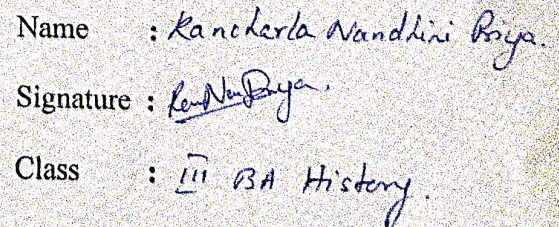 Name : Kancharla Nandhini Priya.
Signature :
Class : III BA History.